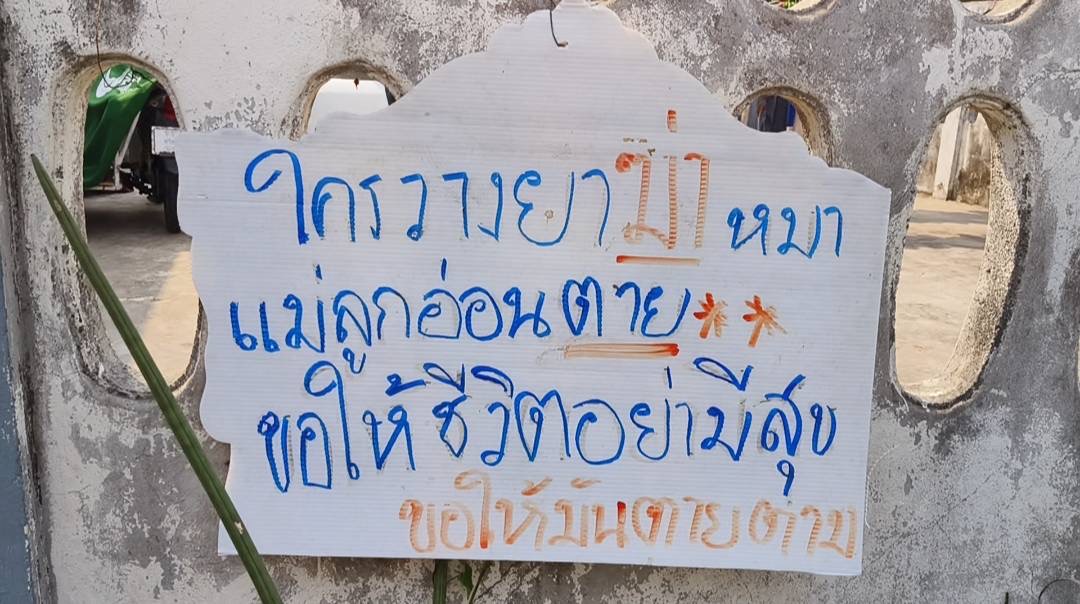 ใครวางยาฆ่าหมา
แม่ลูกอ่อนตาย**
ขอให้ชีวิตอย่ามีสุข
ขอให้มันตายตาม